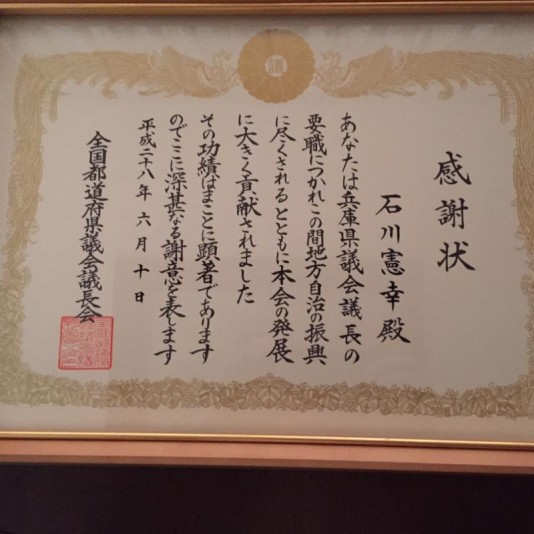 議
感謝状
石川憲幸殿
あなたは兵庫県議会議長の
要職につかれこの間地方自治の振興
に尽くされるとともに本会の発展
に大きく貢献されました
その功績はまことに顕著であります
のでここに深甚なる謝意を表します
平成二十八年六月十日
全国都道府県議会議長会